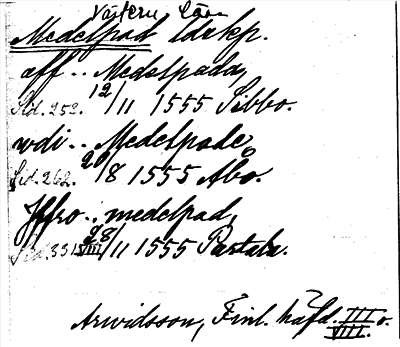 Västern. län
Medelpad ldskp.
aff .. Medelpada,
Sid. 252. 12/11 1555 Sibbo.
wdi .. Medelpade,
Sid. 262. 20/8 1555 Åbo.
Jffro .. medelpad,
Sid. 331 28/11 1555 Partala.
Arwidsson, Finl. häfd. III o. VIII.